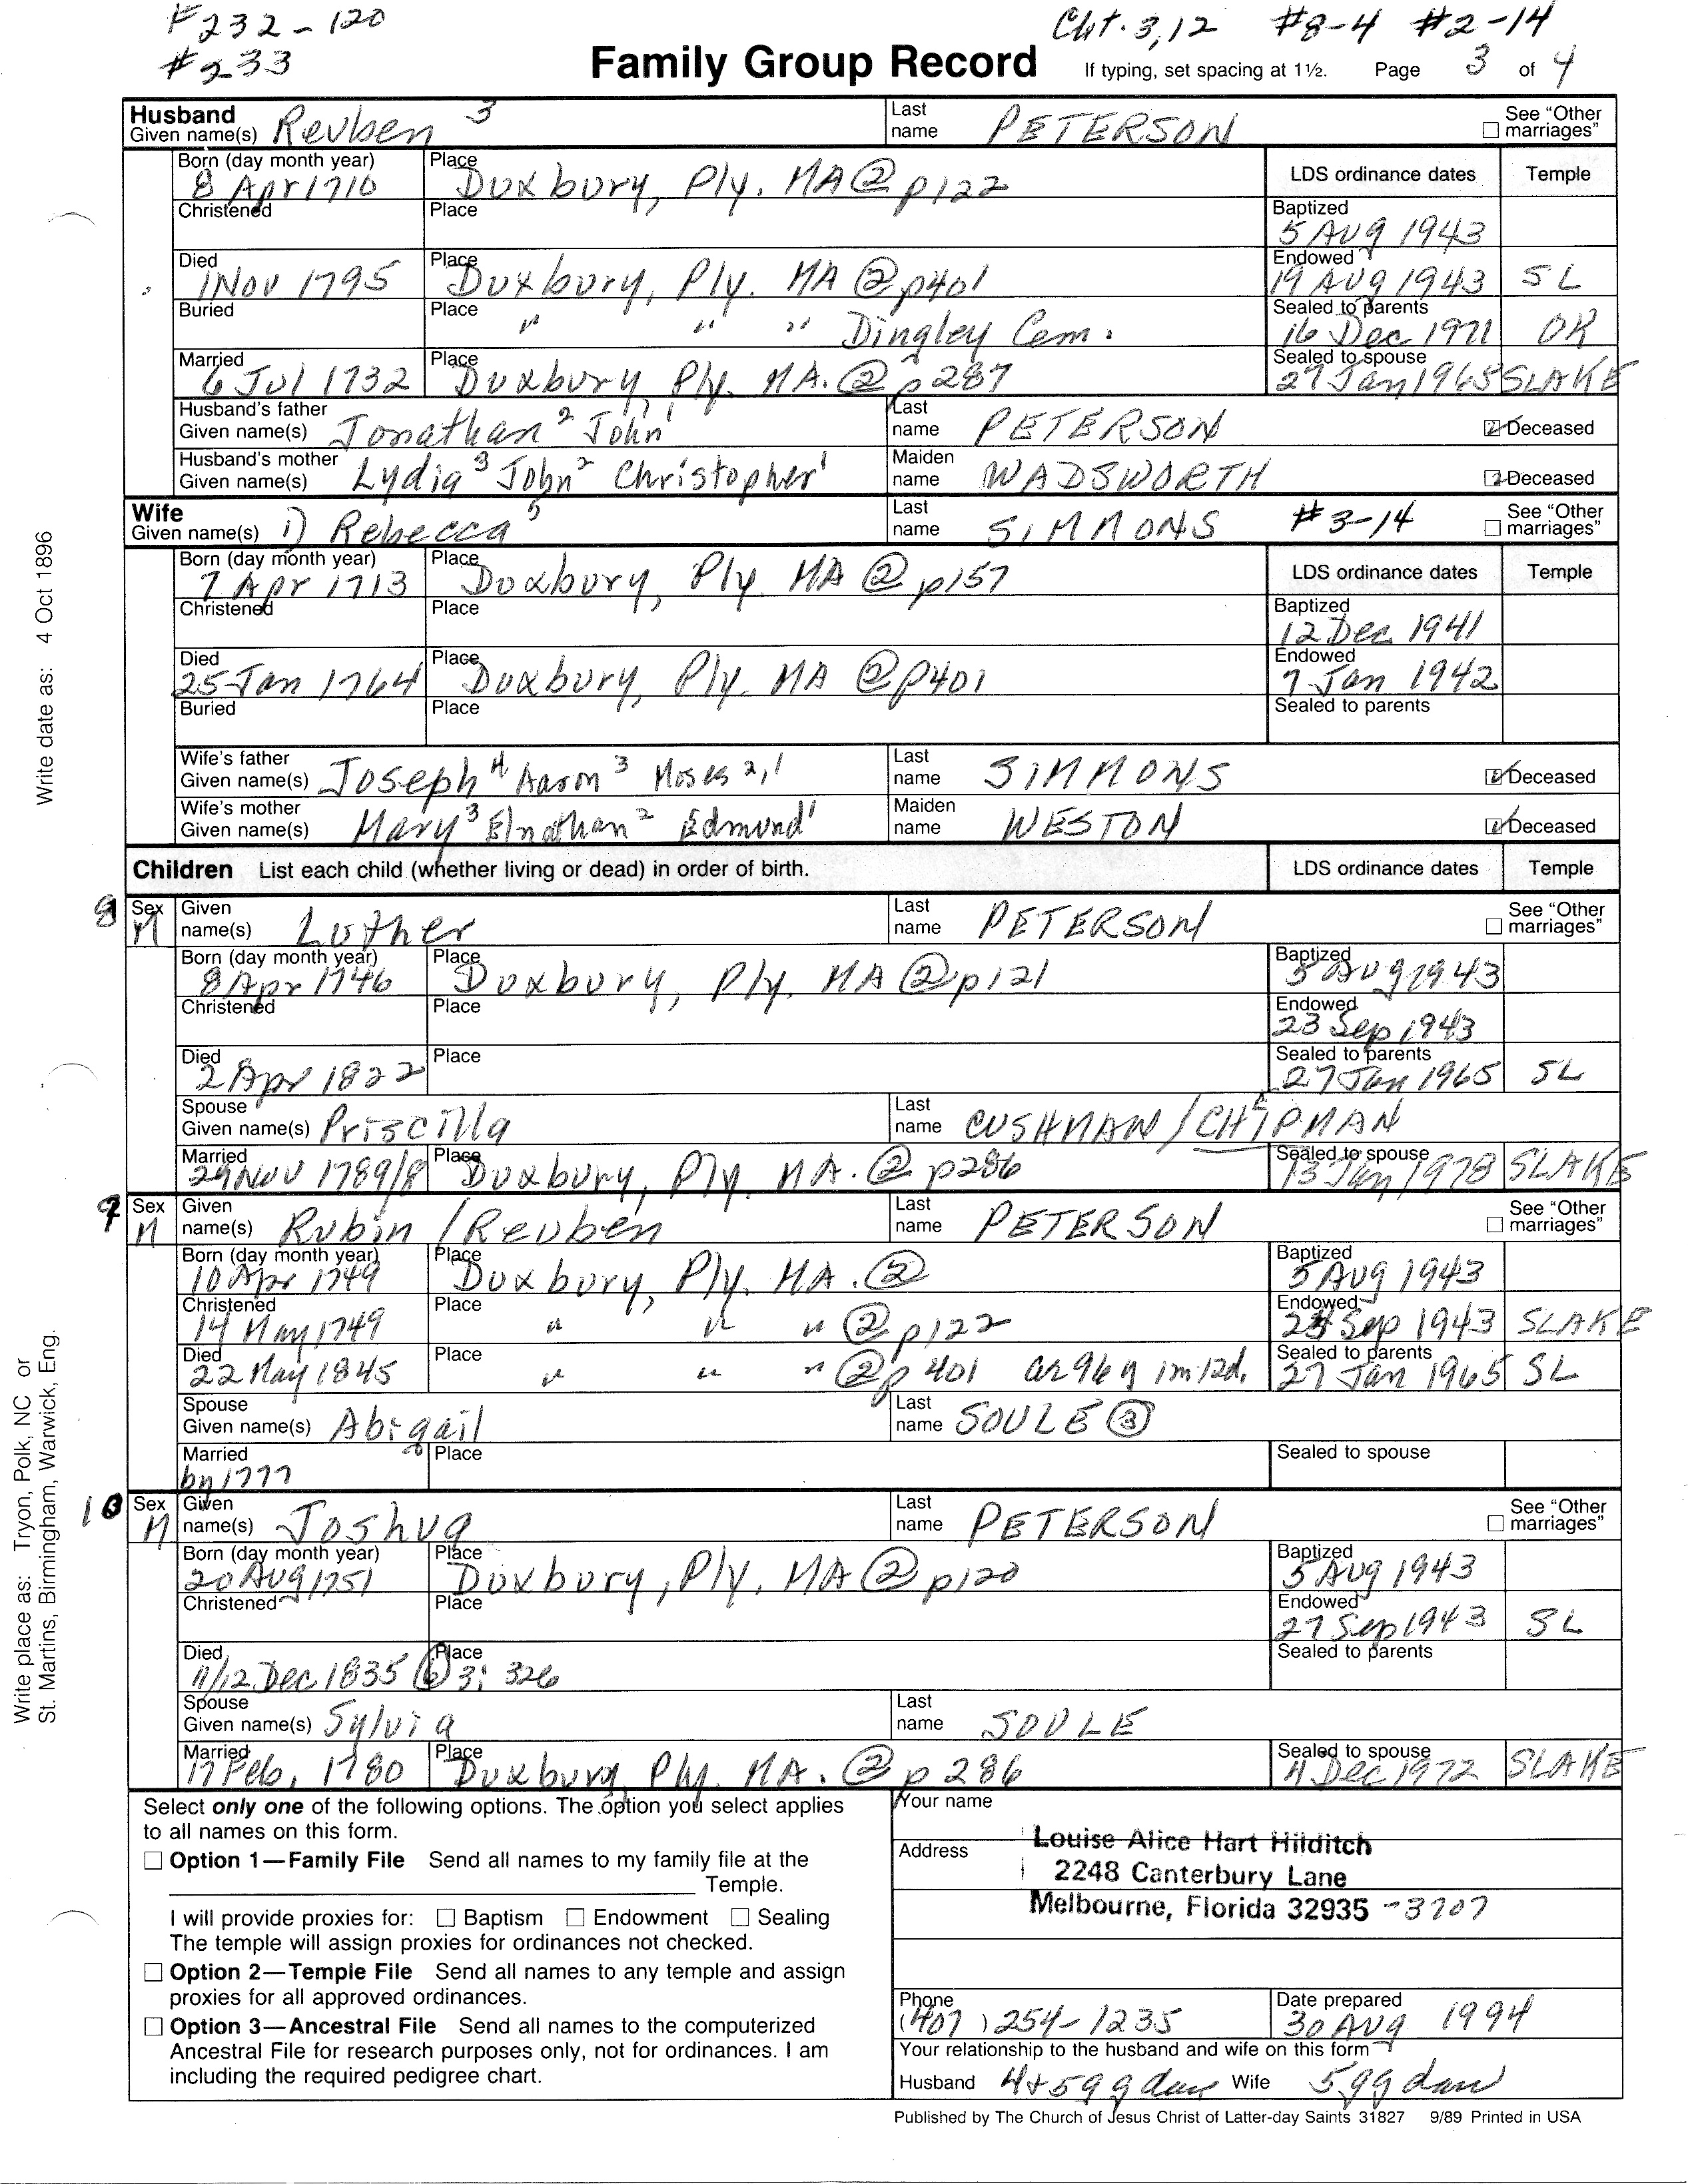 F232-120 Cht. 3,12 #8-4 #2-14
#233 Family Group Record If typing, set spacing at 1½. Page 3 of 4
Husband Given name(s) Reuben 3 Last name PETERSON See "Other marriages"
Born (day month year) 8 Apr 1710 Place Duxbury, Ply. MA @ p122 LDS ordinance dates Temple
Christened Place Baptized 5 AUG 1943
Died 1 Nov 1795 Place Duxbury, Ply. MA @ p401 Endowed 19 AUG 1943 SL
Buried Place " " " Dingley Cem. Sealed to parents 16 Dec 1971 OK
Married 6 Jul 1732 Place Duxbury Ply. MA. ② p287 Sealed to spouse 27 Jan 1965 SLAKE
Husband's father Given name(s) Jonathan 2 John 1 Last name PETERSON Deceased
Husband's mother Given name(s) Lydia 3 John 2 Christopher 1 Maiden name WADSWORTH Deceased
Wife Given name(s) 1) Rebecca 5 Last name SIMMONS #3-14 See "Other marriages"
Born (day month year) 7 Apr 1713 Place Duxbury, Ply MA ② p157 LDS ordinance dates Temple
Christened Place Baptized 12 Dec 1941
Died 25 Jan 1764 Place Duxbury, Ply. MA ② p401 Endowed 7 Jan 1942
Buried Place Sealed to parents
Wife's father Given name(s) Joseph 4 Aaron 3 Moses 2,1 Last name SIMMONS Deceased
Wife's mother Given name(s) Mary 3 Elnathan 2 Edmund 1 Maiden name WESTON Deceased
Children List each child (whether living or dead) in order of birth. LDS ordinance dates Temple
8 Sex M Given name(s) Luther Last name PETERSON See "Other marriages"
Born (day month year) 8 Apr 1746 Place Duxbury, Ply. MA ② p121 Baptized 5 AUG 1943
Christened Place Endowed 23 Sep 1943
Died 2 Apr 1822 Place Sealed to parents 27 Jan 1965 SL
Spouse Given name(s) Priscilla Last name CUSHMAN / CHIPMAN
Married 29 Nov 1789/8 Place Duxbury, Ply. MA. ② p286 Sealed to spouse 13 Jan 1978 SLAKE
9 Sex M Given name(s) Rubin / Reuben Last name PETERSON See "Other marriages"
Born (day month year) 10 Apr 1749 Place Duxbury, Ply. MA. ② Baptized 5 AUG 1943
Christened 14 May 1749 Place " " " ② p122 Endowed Sep 1943 SLAKE
Died 22 May 1845 Place " " " ② p401 ae 96 y 1m 12d. Sealed to parents 27 Jan 1965 SL
Spouse Given name(s) Abigail Last name SOULE ③
Married by 1777 Place Sealed to spouse
10 Sex M Given name(s) Joshua Last name PETERSON See "Other marriages"
Born (day month year) 20 AUG 1751 Place Duxbury, Ply. MA ② p120 Baptized 5 AUG 1943
Christened Place Endowed 27 Sep 1943 SL
Died 11/12 Dec 1835 Place ⑥ 3: 326 Sealed to parents
Spouse Given name(s) Sylvia Last name SOULE
Married 17 Feb. 1780 Place Duxbury Ply. MA. ② p 286 Sealed to spouse 11 Dec 1972 SLAKE
Select only one of the following options. The option you select applies to all names on this form.
Option 1—Family File Send all names to my family file at the
Temple.
I will provide proxies for: Baptism Endowment Sealing
The temple will assign proxies for ordinances not checked.
Option 2—Temple File Send all names to any temple and assign
proxies for all approved ordinances.
Option 3—Ancestral File Send all names to the computerized
Ancestral File for research purposes only, not for ordinances. I am
including the required pedigree chart.
Your name
Address Louise Alice Hart Hilditch
2248 Canterbury Lane
Melbourne, Florida 32935 -3707
Phone (407) 254-1235 Date prepared 30 AUG 1994
Your relationship to the husband and wife on this form
Husband 4+5 g g dau Wife 5 gg dau
Published by The Church of Jesus Christ of Latter-day Saints 31827 9/89 Printed in USA
Write date as: 4 Oct 1896
Write place as: Tryon, Polk, NC or
St. Martins, Birmingham, Warwick, Eng.